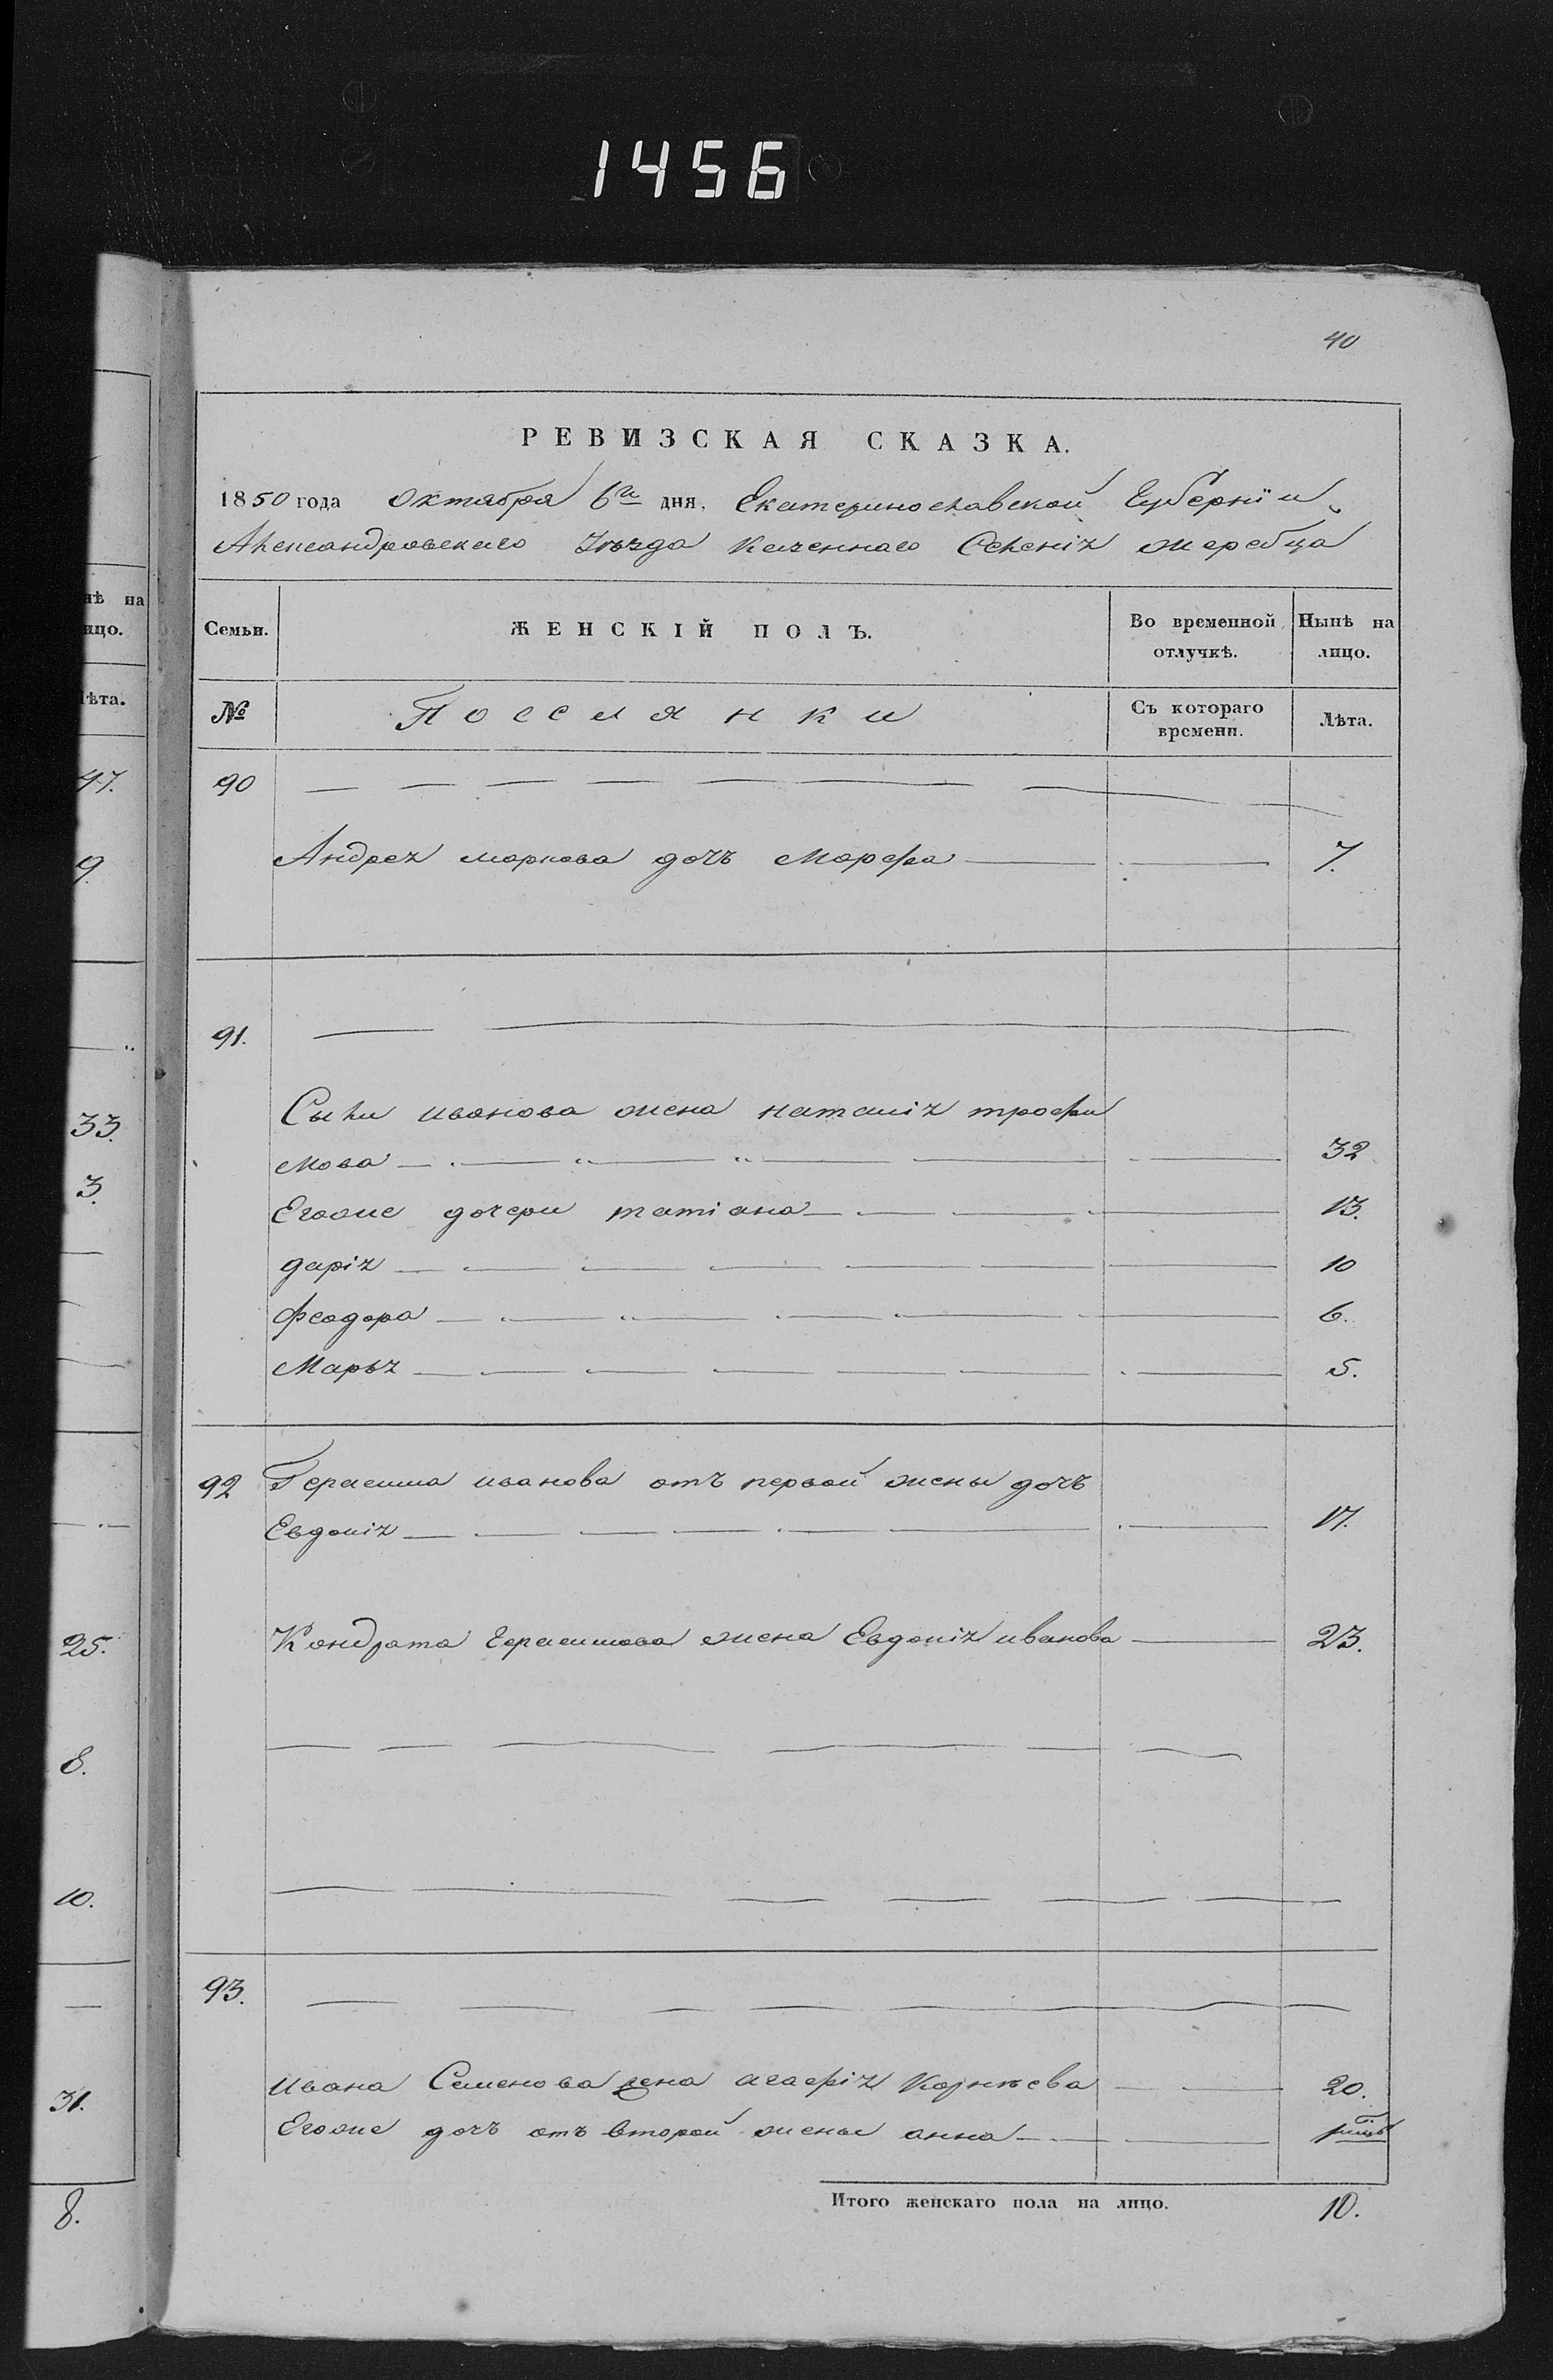 1456
40
РЕВИЗСКАЯ СКАЗКА.
1850 года Октября 6го дня, Екатеринославской Губерніи
Александровскаго Уѣзда Казеннаго Селенія жеребца
Семьи. ЖЕНСКІЙ ПОЛЪ. Во временной отлучкѣ. Нынѣ на лицо.
№ Посселянки Съ котораго времени. Лѣта.
90
Андрея маркова дочь Марфа 7.
91.
Сылы иванова жена наталія трофи
мова 32
Егоже дочери татіана 13.
дарія 10
феодора 6.
Марья 5.
92 Герасима иванова отъ первой жены дочь
Евдокія 17.
Кондрата Герасимова жена Евдокія иванова 23.
93.
ивана Семенова жена агафія Корнѣева 20.
Егоже дочь отъ второй жены анна
Итого женскаго пола на лицо. 10.
нѣ на
ицо.
лѣта.
47.
9.
33.
3.
25.
8.
10.
31.
8.